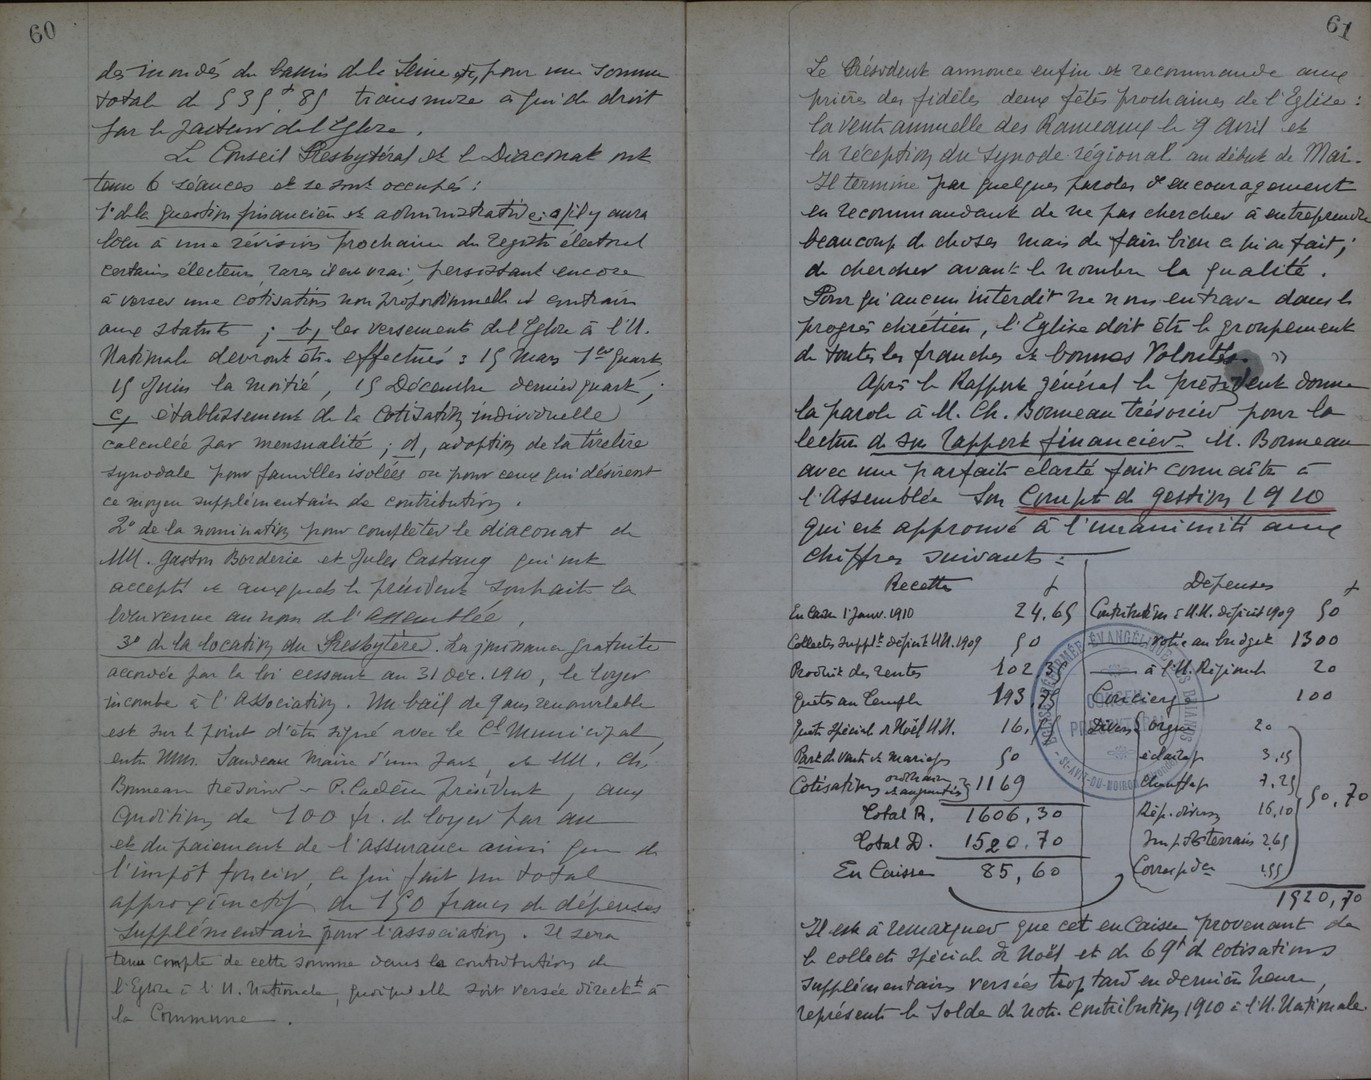 60
des inondés du bassin de la Seine etc, pour une somme
total de 535f,85 transmise à qui de droit
par le pasteur de l'Eglise.
Le Conseil Presbytéral et le Diaconat ont
tenu 6 séances et se sont occupés :
1° de la question financière et administrative : a, il y aura
lieu à une révision prochaine du registre électoral
certains électeurs rares il est vrai, persistant encore
à verser une cotisation non proportionnelle et contraire
aux statuts ; b, les versements de l'Eglise à l'U.
Nationale devront être effectués : 15 Mars 1er quart,
15 Juin la moitié, 15 Décembre dernier quart ;
c, établissement de la cotisation individuelle
calculée par mensualité ; d, adoption de la tirelire
synodale pour familles isolées ou pour ceux qui désirent
ce moyen supplémentaire de contribution.
2° de la nomination pour compléter le diaconat de
MM. Gaston Borderie et Jules Castang qui ont
accepté et auxquels le président souhaite la
bienvenue au nom de l'assemblée.
3° de la location du Presbytère. La jouissance gratuite
accordée par la loi cessant au 31 Déc. 1910, le loyer
incombe à l'Association. Un bail de 9 ans renouvelable
est sur le point d'être signé avec le Cel Municipal
entre MM. Maire d'une part, et MM. Ch.
Bonneau trésorier et P. Cadène président, aux
conditions de 100 fr. de loyer par an
et du paiement de l'assurance ainsi que de
l'impôt foncier, ce qui fait un total
approximatif de 150 francs de dépenses
supplémentaires pour l'association. Il sera
tenu compte de cette somme dans la contribution de
l'Eglise à l'U. Nationale, quoiqu'elle soit versée directt à
la Commune.
61
Le Président annonce enfin et recommande aux
prières des fidèles deux fêtes prochaines de l'Eglise :
la vente annuelle des Rameaux le 9 Avril et
la réception du synode régional au début de Mai.
Il termine par quelques paroles d'encouragement
en recommandant de ne pas chercher à entreprendre
beaucoup de choses mais de faire bien ce qu'on fait ;
de chercher avant le nombre la qualité.
Pour qu'aucun interdit ne nous entrave dans le
progrès chrétien, l'Eglise doit être le groupement
de toutes les franches et bonnes Volontés. »
Après le Rapport général le président donne
la parole à M. Ch. Bonneau trésorier pour la
lecture de son rapport financier. M. Bonneau
avec une parfaite clarté fait connaître à
l'Assemblée son Compte de gestion 1910
qui est approuvé à l'unanimité aux
chiffres suivants :
Recettes f Dépenses f
En Caisse 1 Janv. 1910 24.65 Contribution à U.N. déficit 1909 50
Collectes supplt déficit U.N. 1909 50 votée au budget 1300
Produit des rentes 102,3 à l'U. Régionale 20
Quêtes au Temple 193,75 Concierge 100
Quête spéciale de Noël U.N. 16, Divers orgue 20
Part de vente et mariages 50 éclairage 3,15
Cotisations ordinaires et augmentées 1169 Chauffage 7,25
Total R. 1606,30 Rép. divers 16,10 50,70
Total D. 1520.70 Imp. 2,65
En Caisse 85,60 Correspdce 1,55
1520,70
Il est à remarquer que cet en Caisse provenant de
la collecte spéciale de Noël et de 69f de cotisations
supplémentaires versées trop tard en dernière heure,
représente le solde de notre contribution 1910 à l'U. Nationale.